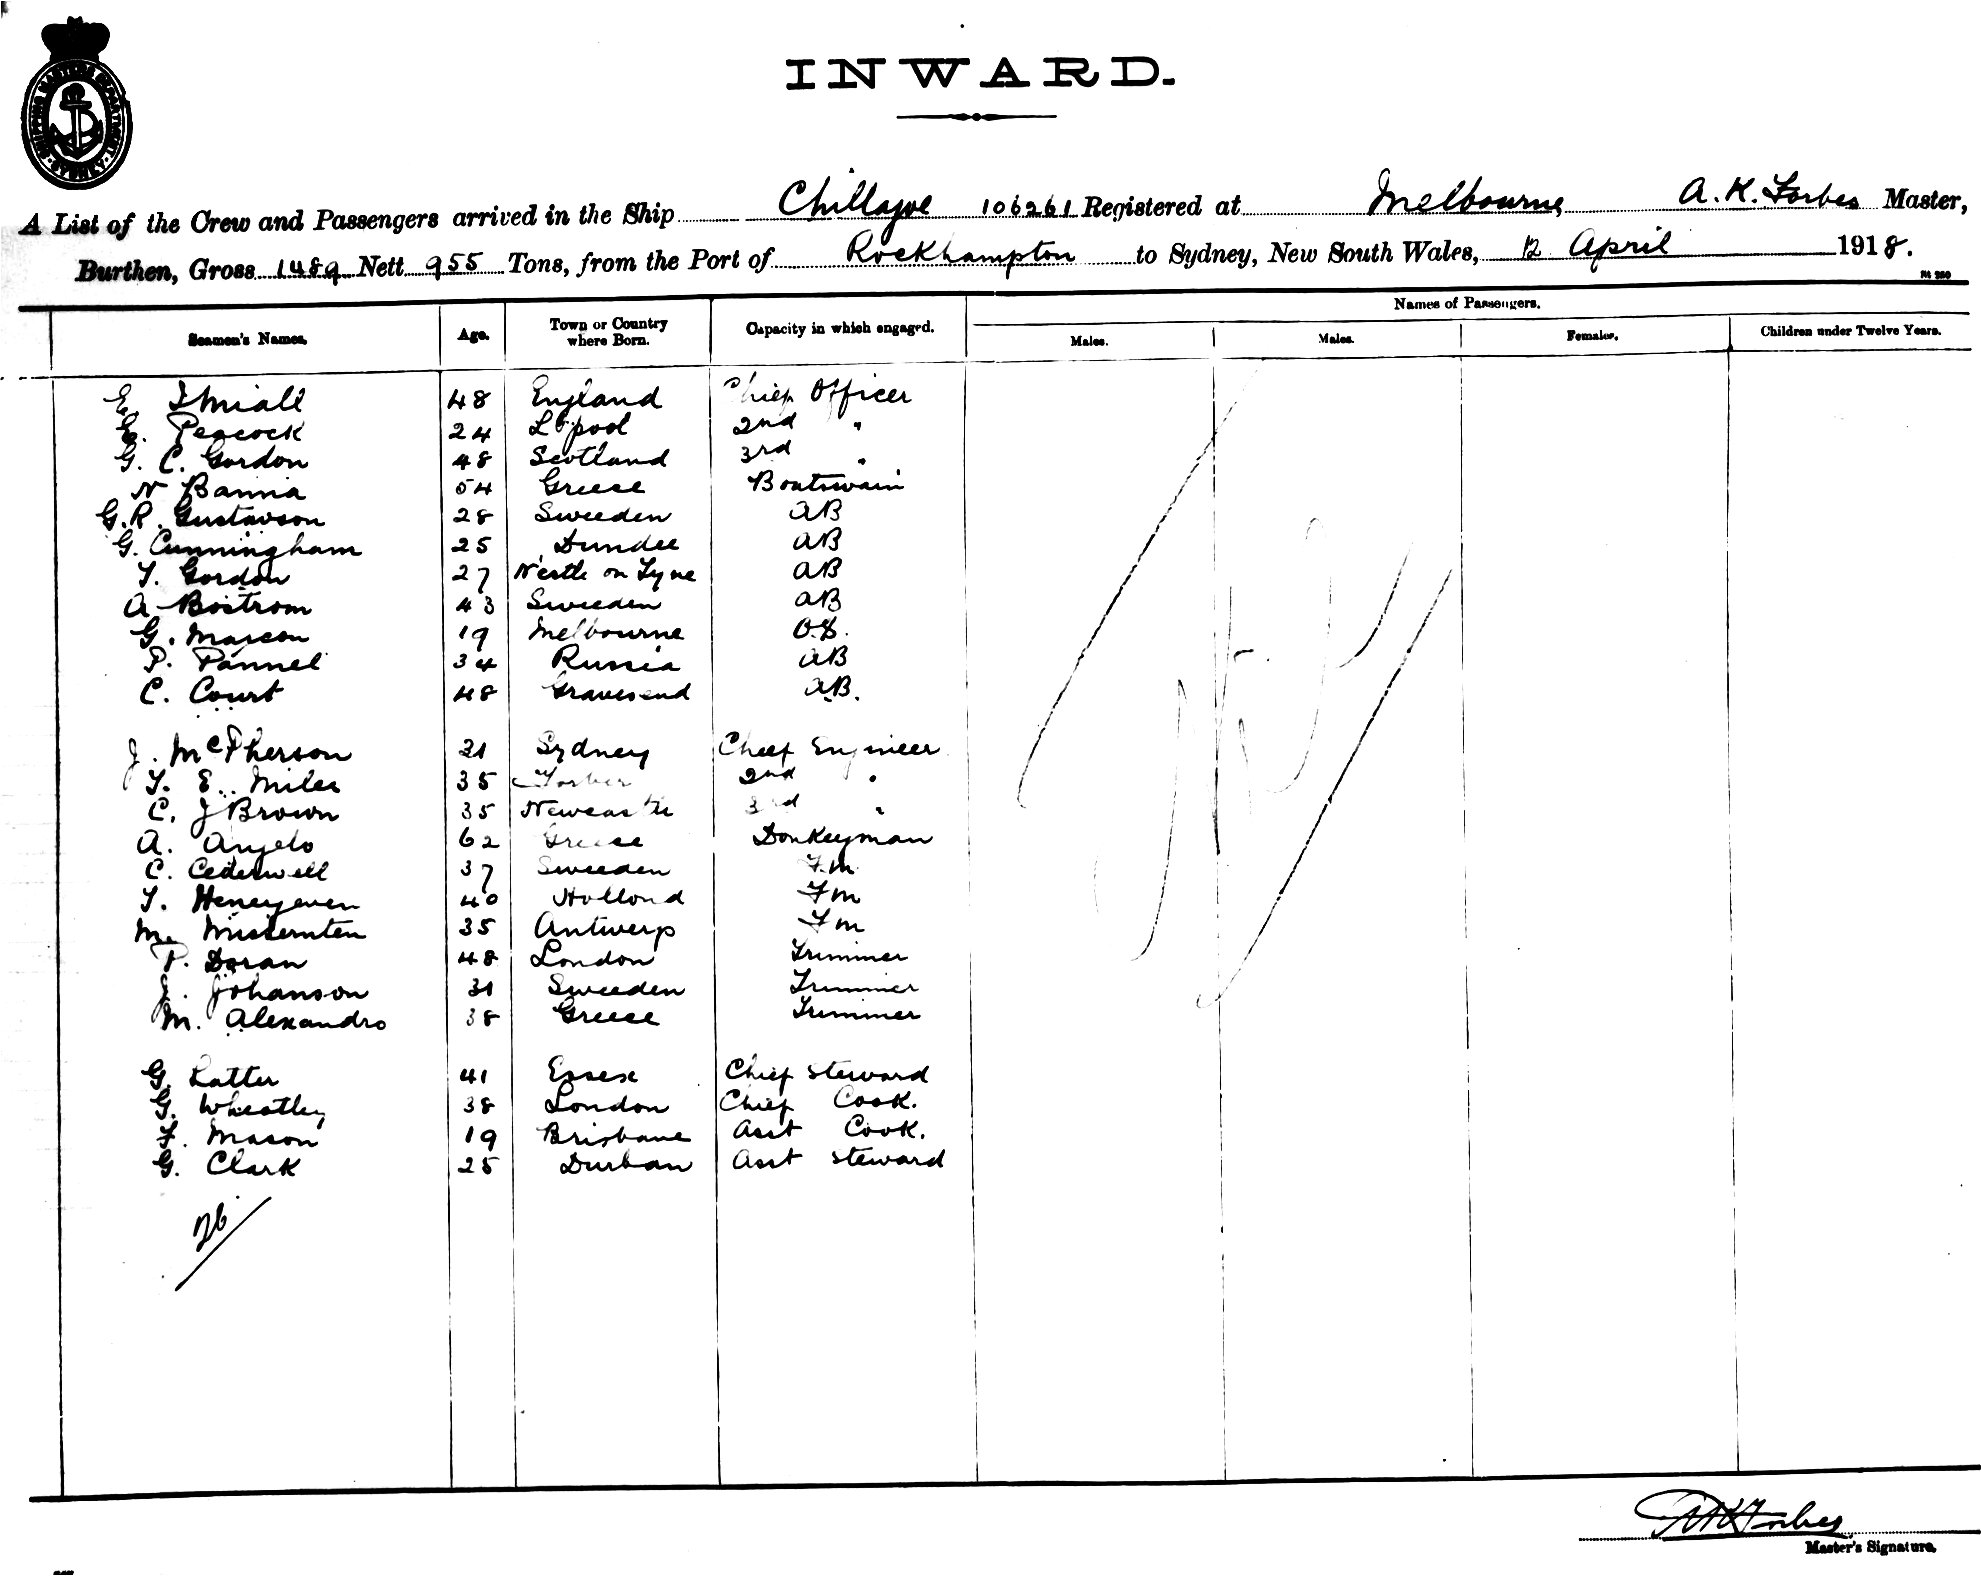 SHIPPING MASTERS DEPARTMENT · SYDNEY ·
INWARD.
A List of the Crew and Passengers arrived in the Ship Chillagoe 106261 Registered at Melbourne A. K. Forbes Master,
Burthen, Gross 1489 Nett 955 Tons, from the Port of Rockhampton to Sydney, New South Wales, 12 April 1918.
Names of Passengers.
Seamen's Names. Age. Town or Country where Born. Capacity in which engaged. Males. Males. Females. Children under Twelve Years.
E. Thriall 48 England Chief Officer
E. Peacock 24 L'pool 2nd "
G. C. Gordon 48 Scotland 3rd "
N Bania 54 Greese Boatswain
G. R. Gustavson 28 Sweeden AB
G. Cunningham 25 Dundee AB
T. Gordon 27 N'castle on Tyne AB
A Bostrom 43 Sweeden AB
G. Marcon 19 Melbourne O.S.
P. Pannel 34 Russia AB
C. Court 48 Gravesend AB.
J. McPherson 31 Sydney Cheef Engineer
T. E. Miles 35 Forbes 2nd "
C. J Brown 35 Newcastle 3rd "
A. Angelo 62 Greese Donkeyman
C. Cederwell 37 Sweeden F.m
T. 40 Holland Fm
M. 35 Antwerp Fm
P. Doran 48 London Trimmer
J. Johanson 31 Sweeden Trimmer
M. Alexandro 38 Greese Trimmer
G. Latter 41 Essex Chief Steward
G. Wheatley 38 London Chief Cook.
F. Mason 19 Brisbane Asst Cook.
G. Clark 25 Durban Asst Steward
26
Nil
A K Forbes
Master's Signature.